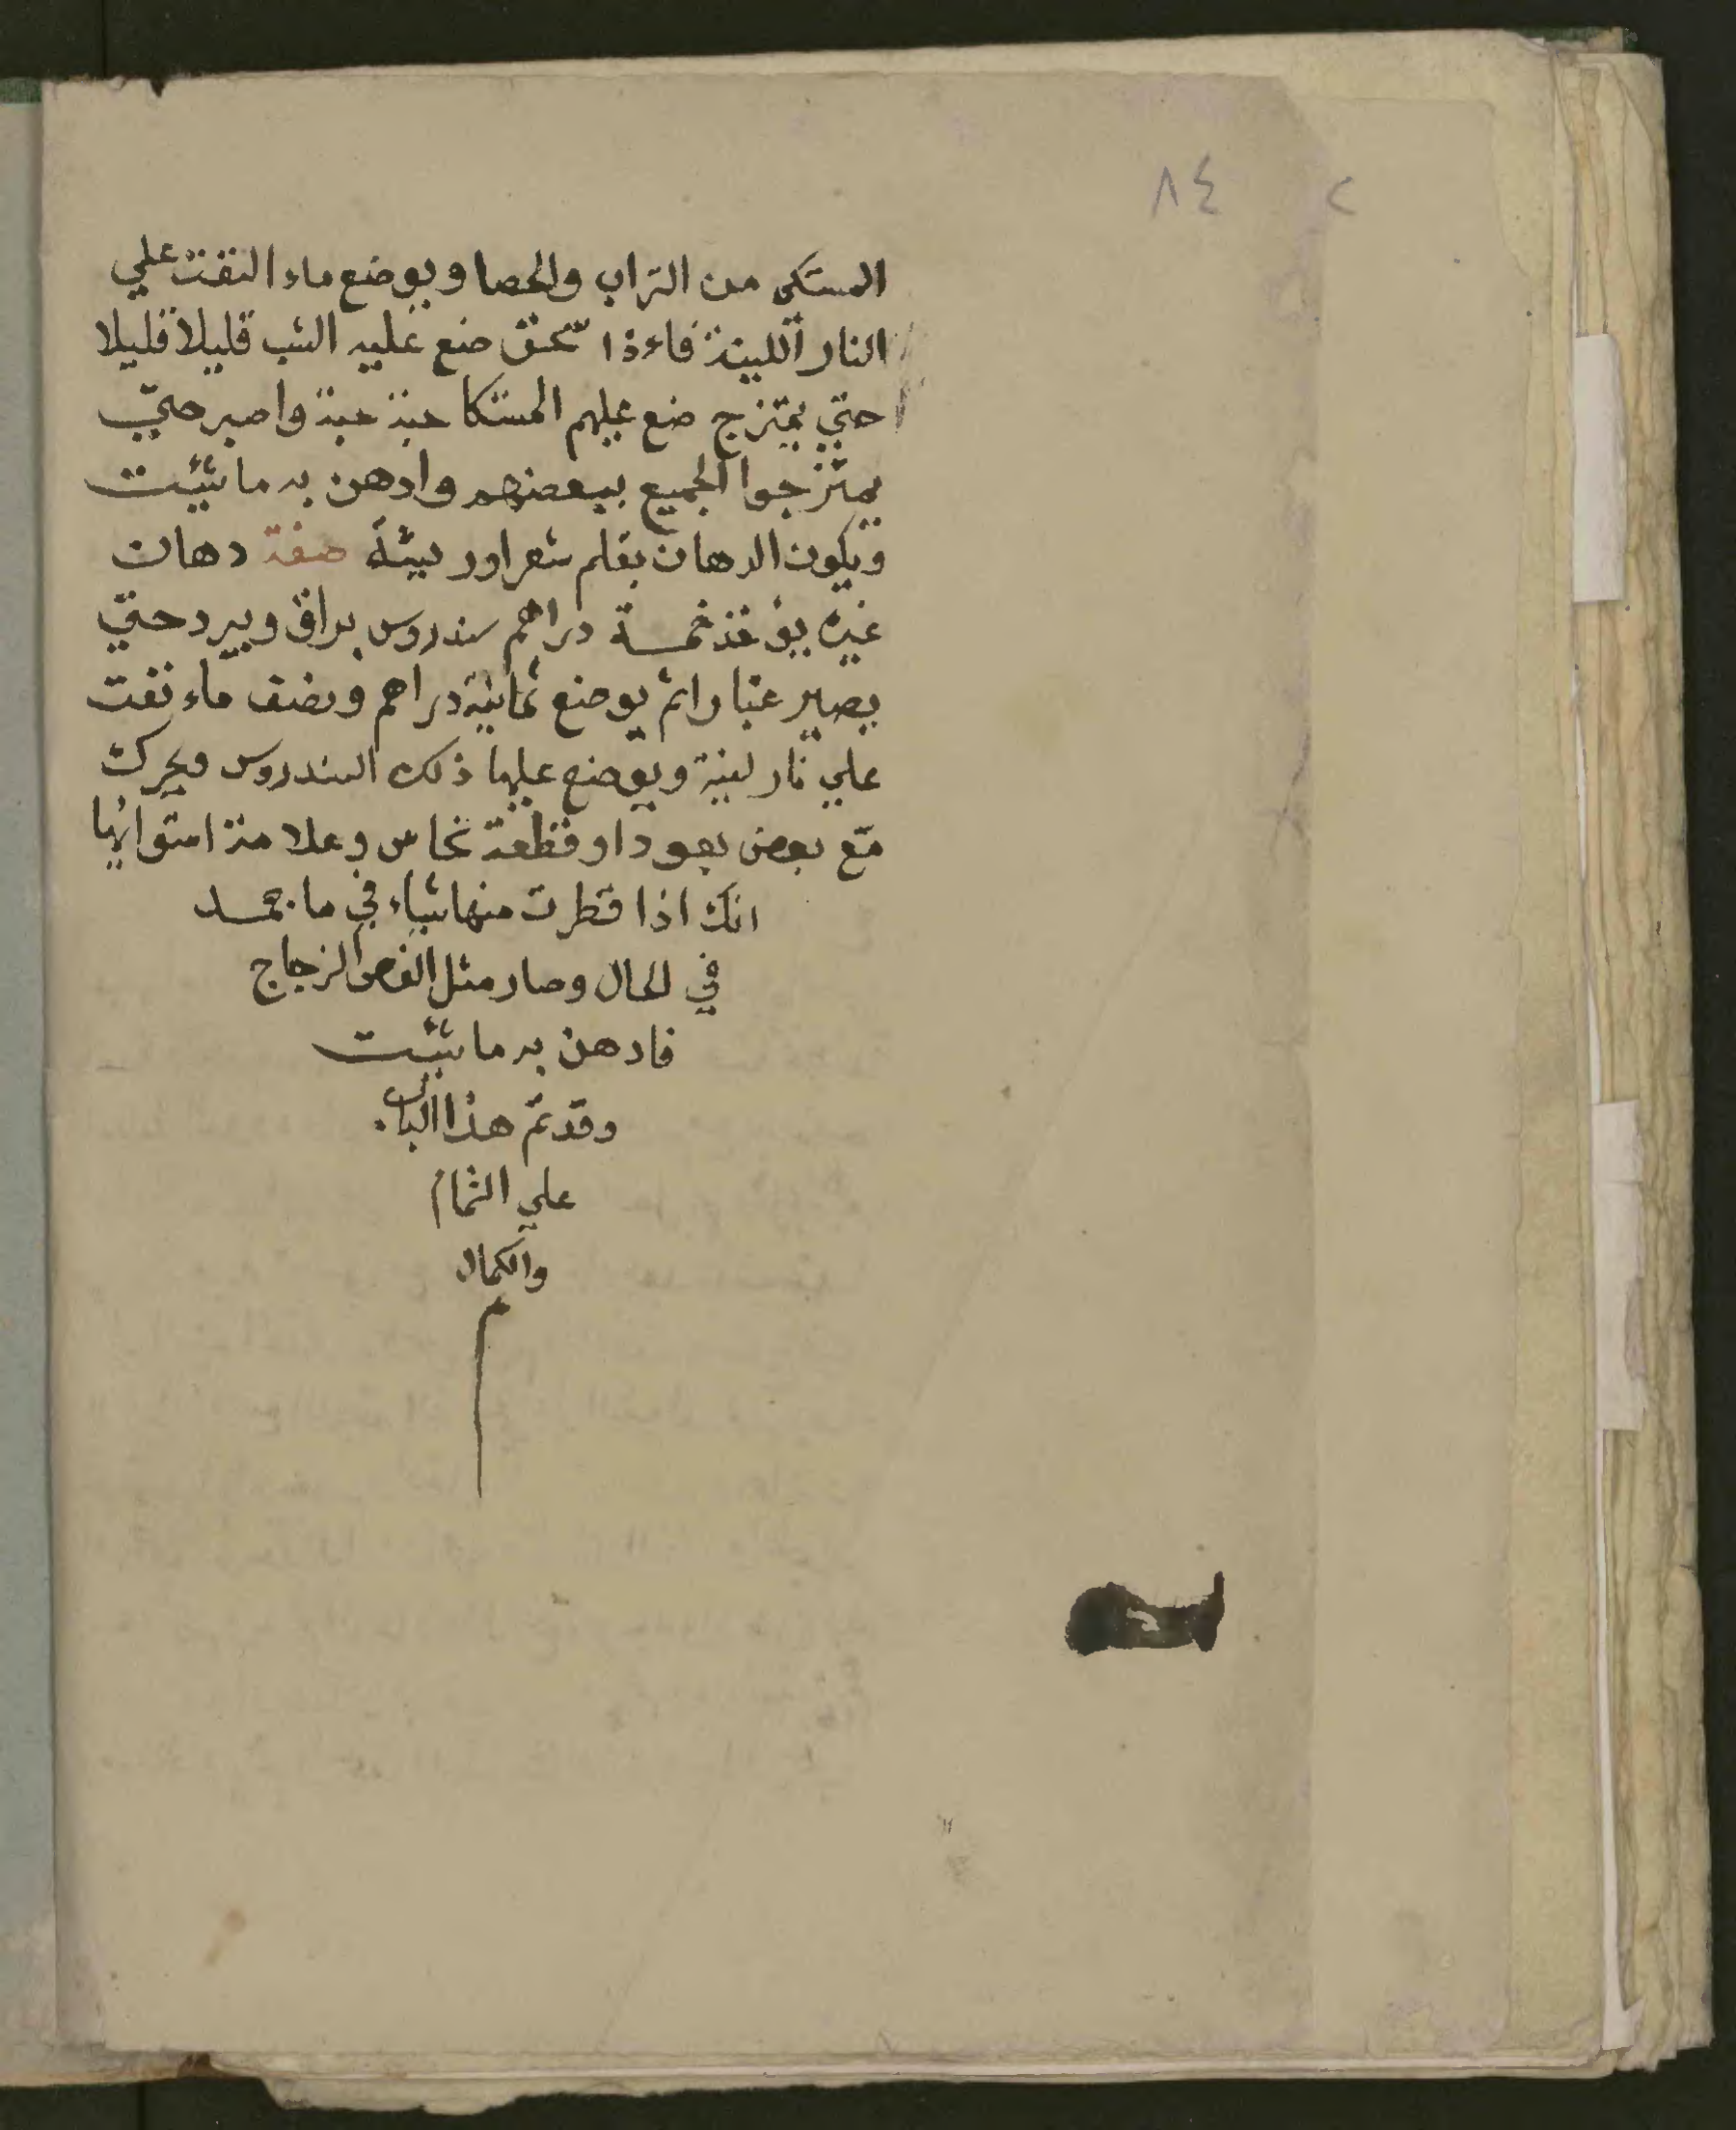 ٨٤ ٢
المستكى من التراب والحصا ويوضع ماء النفت علي
النار اللينة فاءذا سخن ضع عليه الشب قليلا قليلا
حتي يمتزج ضع عليهم المستكا حبة حبة واصبر حتي
يمتزجوا الجميع ببعضهم وادهن به ما شئت
ويكون الدهان بقلم شعر اور بيشة صفة دهان
غيره يؤخذ خمسة دراهم سندروس براق ويبرد حتي
يصير غبارا ثم يوضع ثمانية دراهم ونصف ماء نفت
علي نار لينة ويوضع عليها ذلك السندروس ويحرك
مع بعض بعود او قطعة نحاس وعلامة استوائها
انك اذا قطرت منها شياء في ماء جمد
في الحال وصار مثل الفص الزجاج
فادهن به ما شئت
وقد تم هذا الباب
علي التمام
والكمال
م